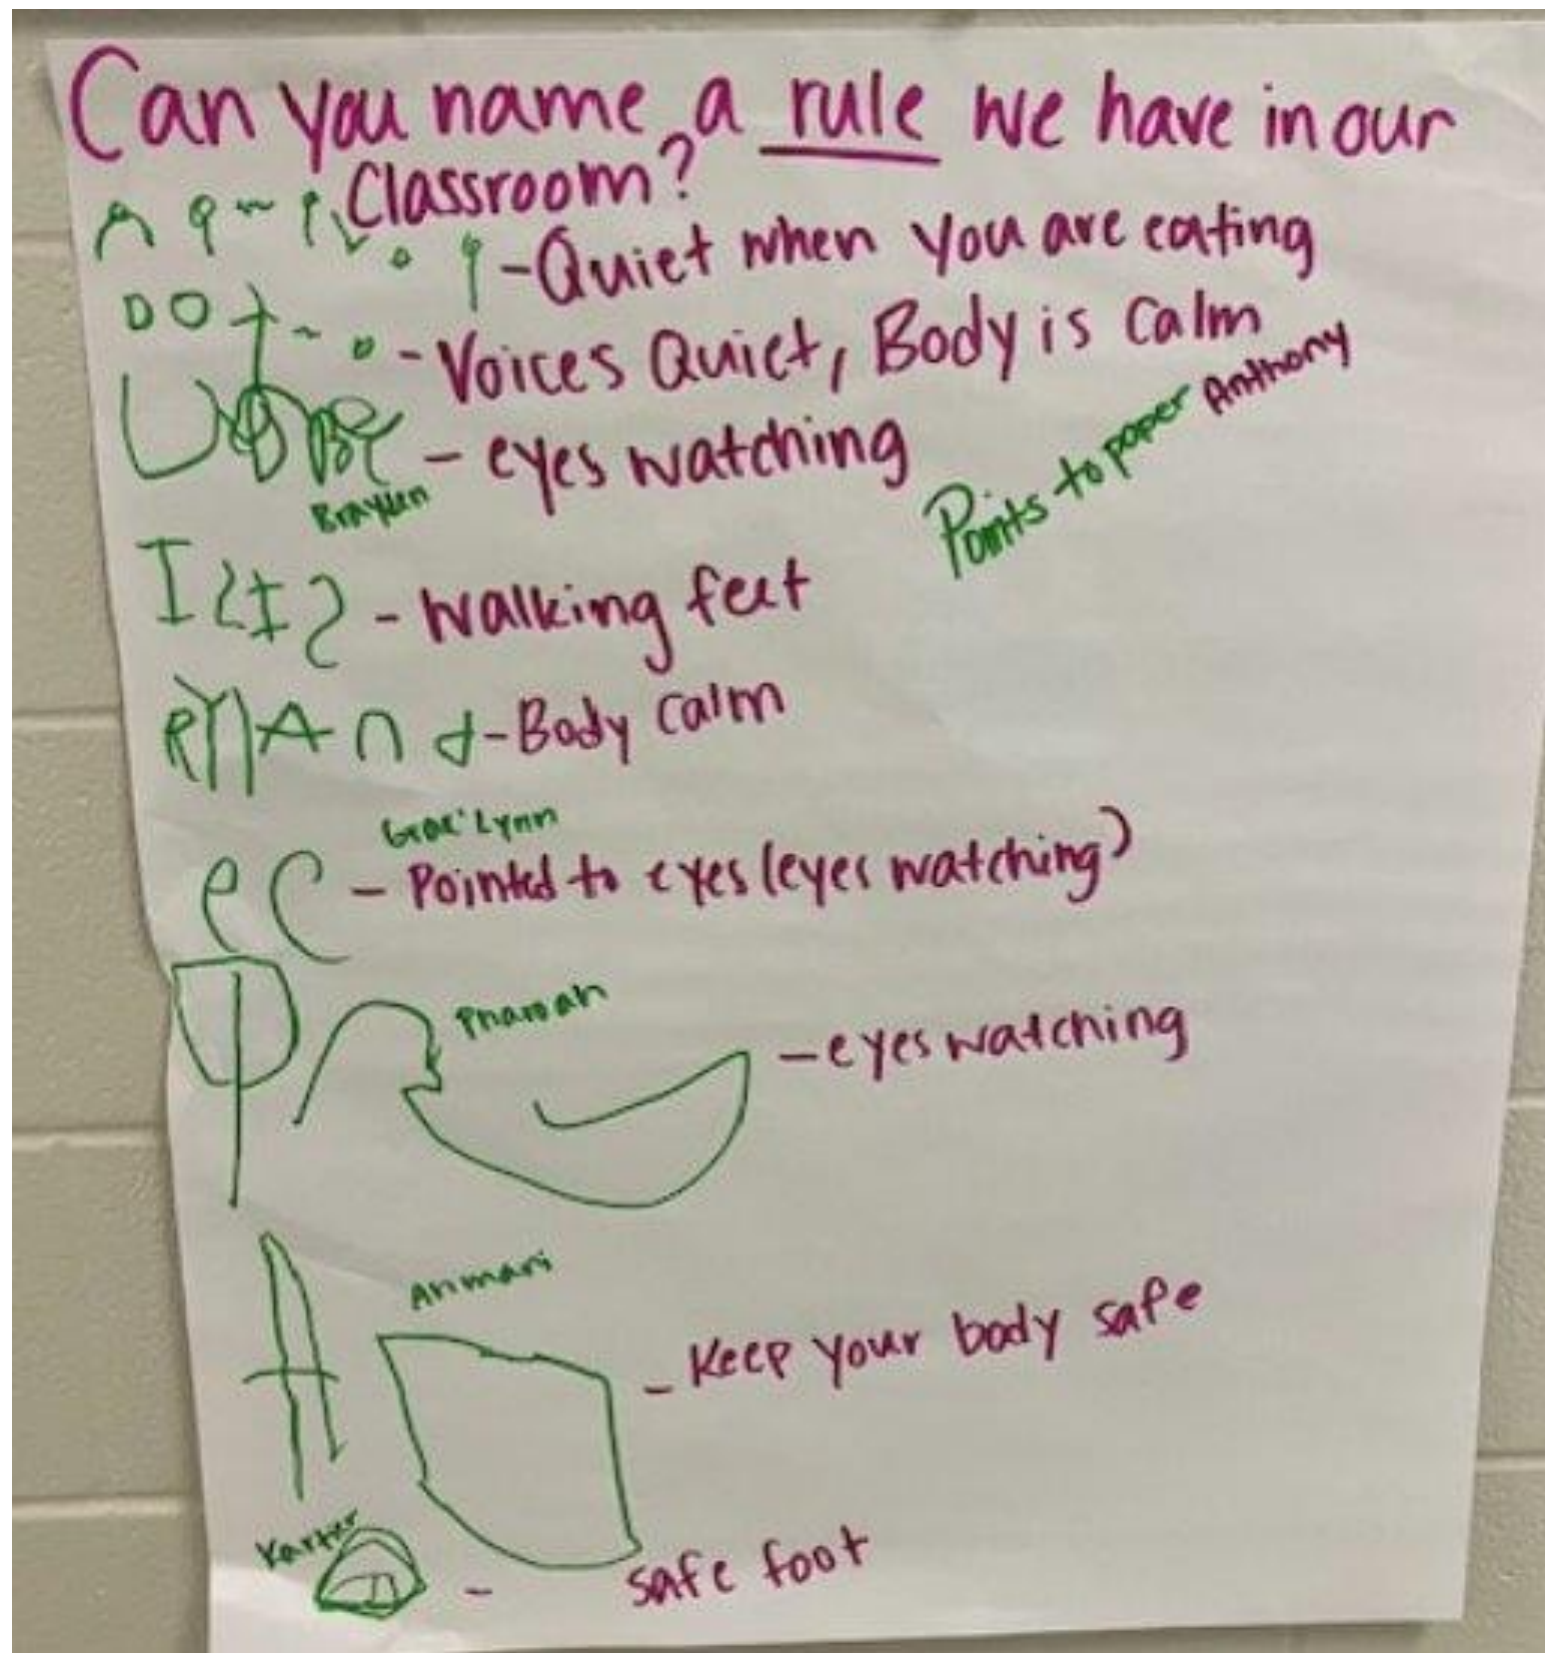 Can you name a rule we have in our
Classroom?
- Quiet when you are eating
- Voices Quiet, Body is Calm
Points to paper Anthony
- eyes watching
Brayden
- Walking feet
- Body Calm
Grac'Lynn
- Pointed to eyes (eyes watching)
Pharoah
- eyes watching
Ahmari
- Keep your body safe
Karter
- safe foot